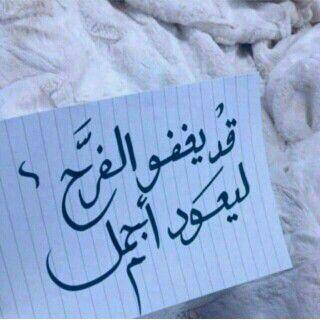 قدْ يغفو الفرَّح ،
ليعَود أجمل